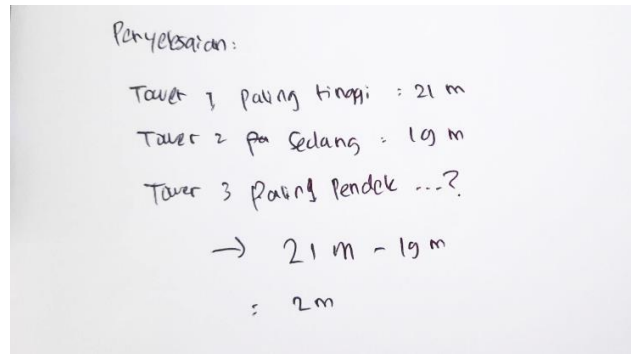 Penyelesaian:
Tower 1 paling tinggi : 21 m
Tower 2 sedang : 19 m
Tower 3 Paling Pendek ...?
→ 21 m - 19 m
: 2 m